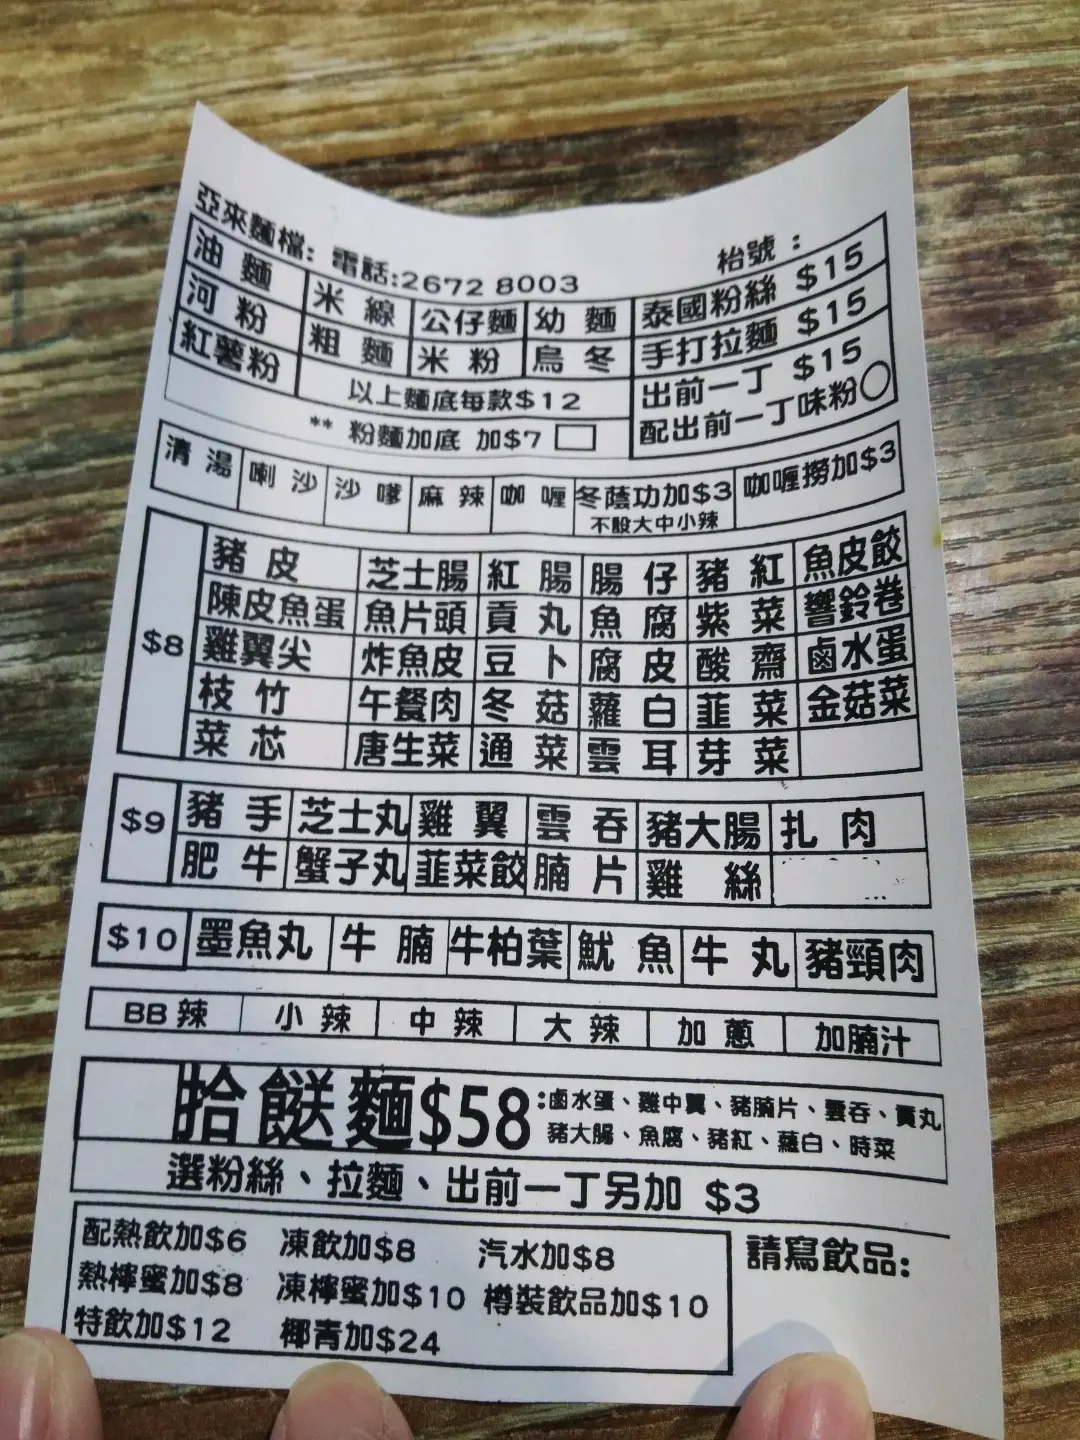 亞來麵檔: 電話:2672 8003 枱號:
油麵 米線 公仔麵 幼麵 泰國粉絲 $15
河粉 粗麵 米粉 烏冬 手打拉麵 $15
紅薯粉 以上麵底每款$12 出前一丁 $15
** 粉麵加底 加$7 配出前一丁味粉
清湯 喇沙 沙嗲 麻辣 咖喱 冬蔭功加$3 咖喱撈加$3
不設大中小辣
豬皮 芝士腸 紅腸 腸仔 豬紅 魚皮餃
陳皮魚蛋 魚片頭 貢丸 魚腐 紫菜 響鈴卷
$8 雞翼尖 炸魚皮 豆卜 腐皮 酸齋 鹵水蛋
枝竹 午餐肉 冬菇 蘿白 韮菜 金菇菜
菜芯 唐生菜 通菜 雲耳 芽菜
$9 豬手 芝士丸 雞翼 雲吞 豬大腸 扎肉
肥牛 蟹子丸 韮菜餃 腩片 雞絲
$10 墨魚丸 牛腩 牛柏葉 魷魚 牛丸 豬頸肉
BB辣 小辣 中辣 大辣 加蔥 加腩汁
拾餸麵$58:鹵水蛋、雞中翼、豬腩片、雲吞、貢丸
豬大腸、魚腐、豬紅、蘿白、時菜
選粉絲、拉麵、出前一丁另加 $3
配熱飲加$6 凍飲加$8 汽水加$8 請寫飲品:
熱檸蜜加$8 凍檸蜜加$10 樽裝飲品加$10
特飲加$12 椰青加$24